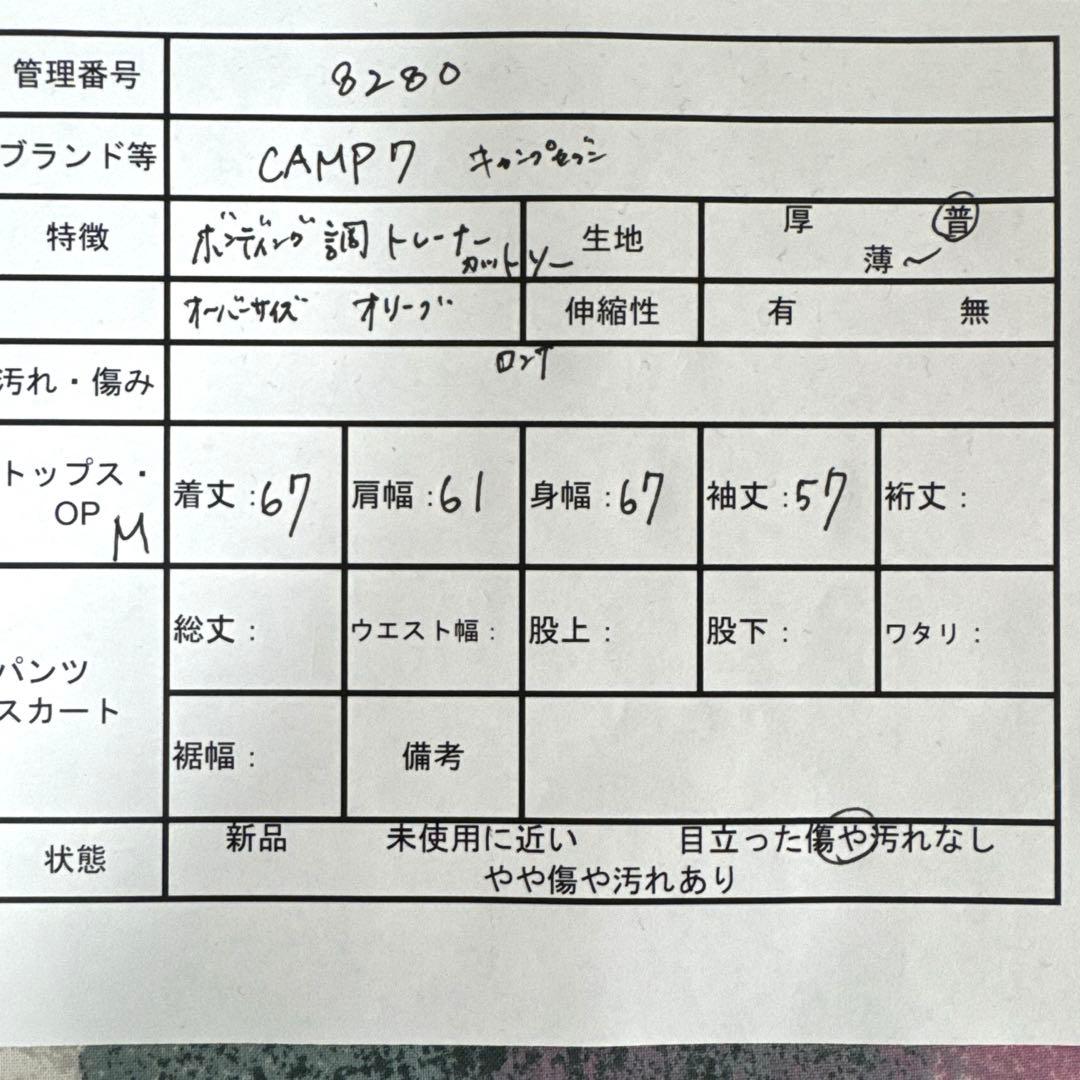 管理番号 8280
ブランド等 CAMP7 キャンプセブン
特徴 ボンディング調 トレーナー 生地 厚 普
カットソー 薄〜
オーバーサイズ オリーブ 伸縮性 有 無
ロンT
汚れ・傷み
トップス・OP M 着丈:67 肩幅:61 身幅:67 袖丈:57 裄丈:
パンツ
スカート
総丈: ウエスト幅: 股上: 股下: ワタリ:
裾幅: 備考
状態 新品 未使用に近い 目立った傷や汚れなし
やや傷や汚れあり